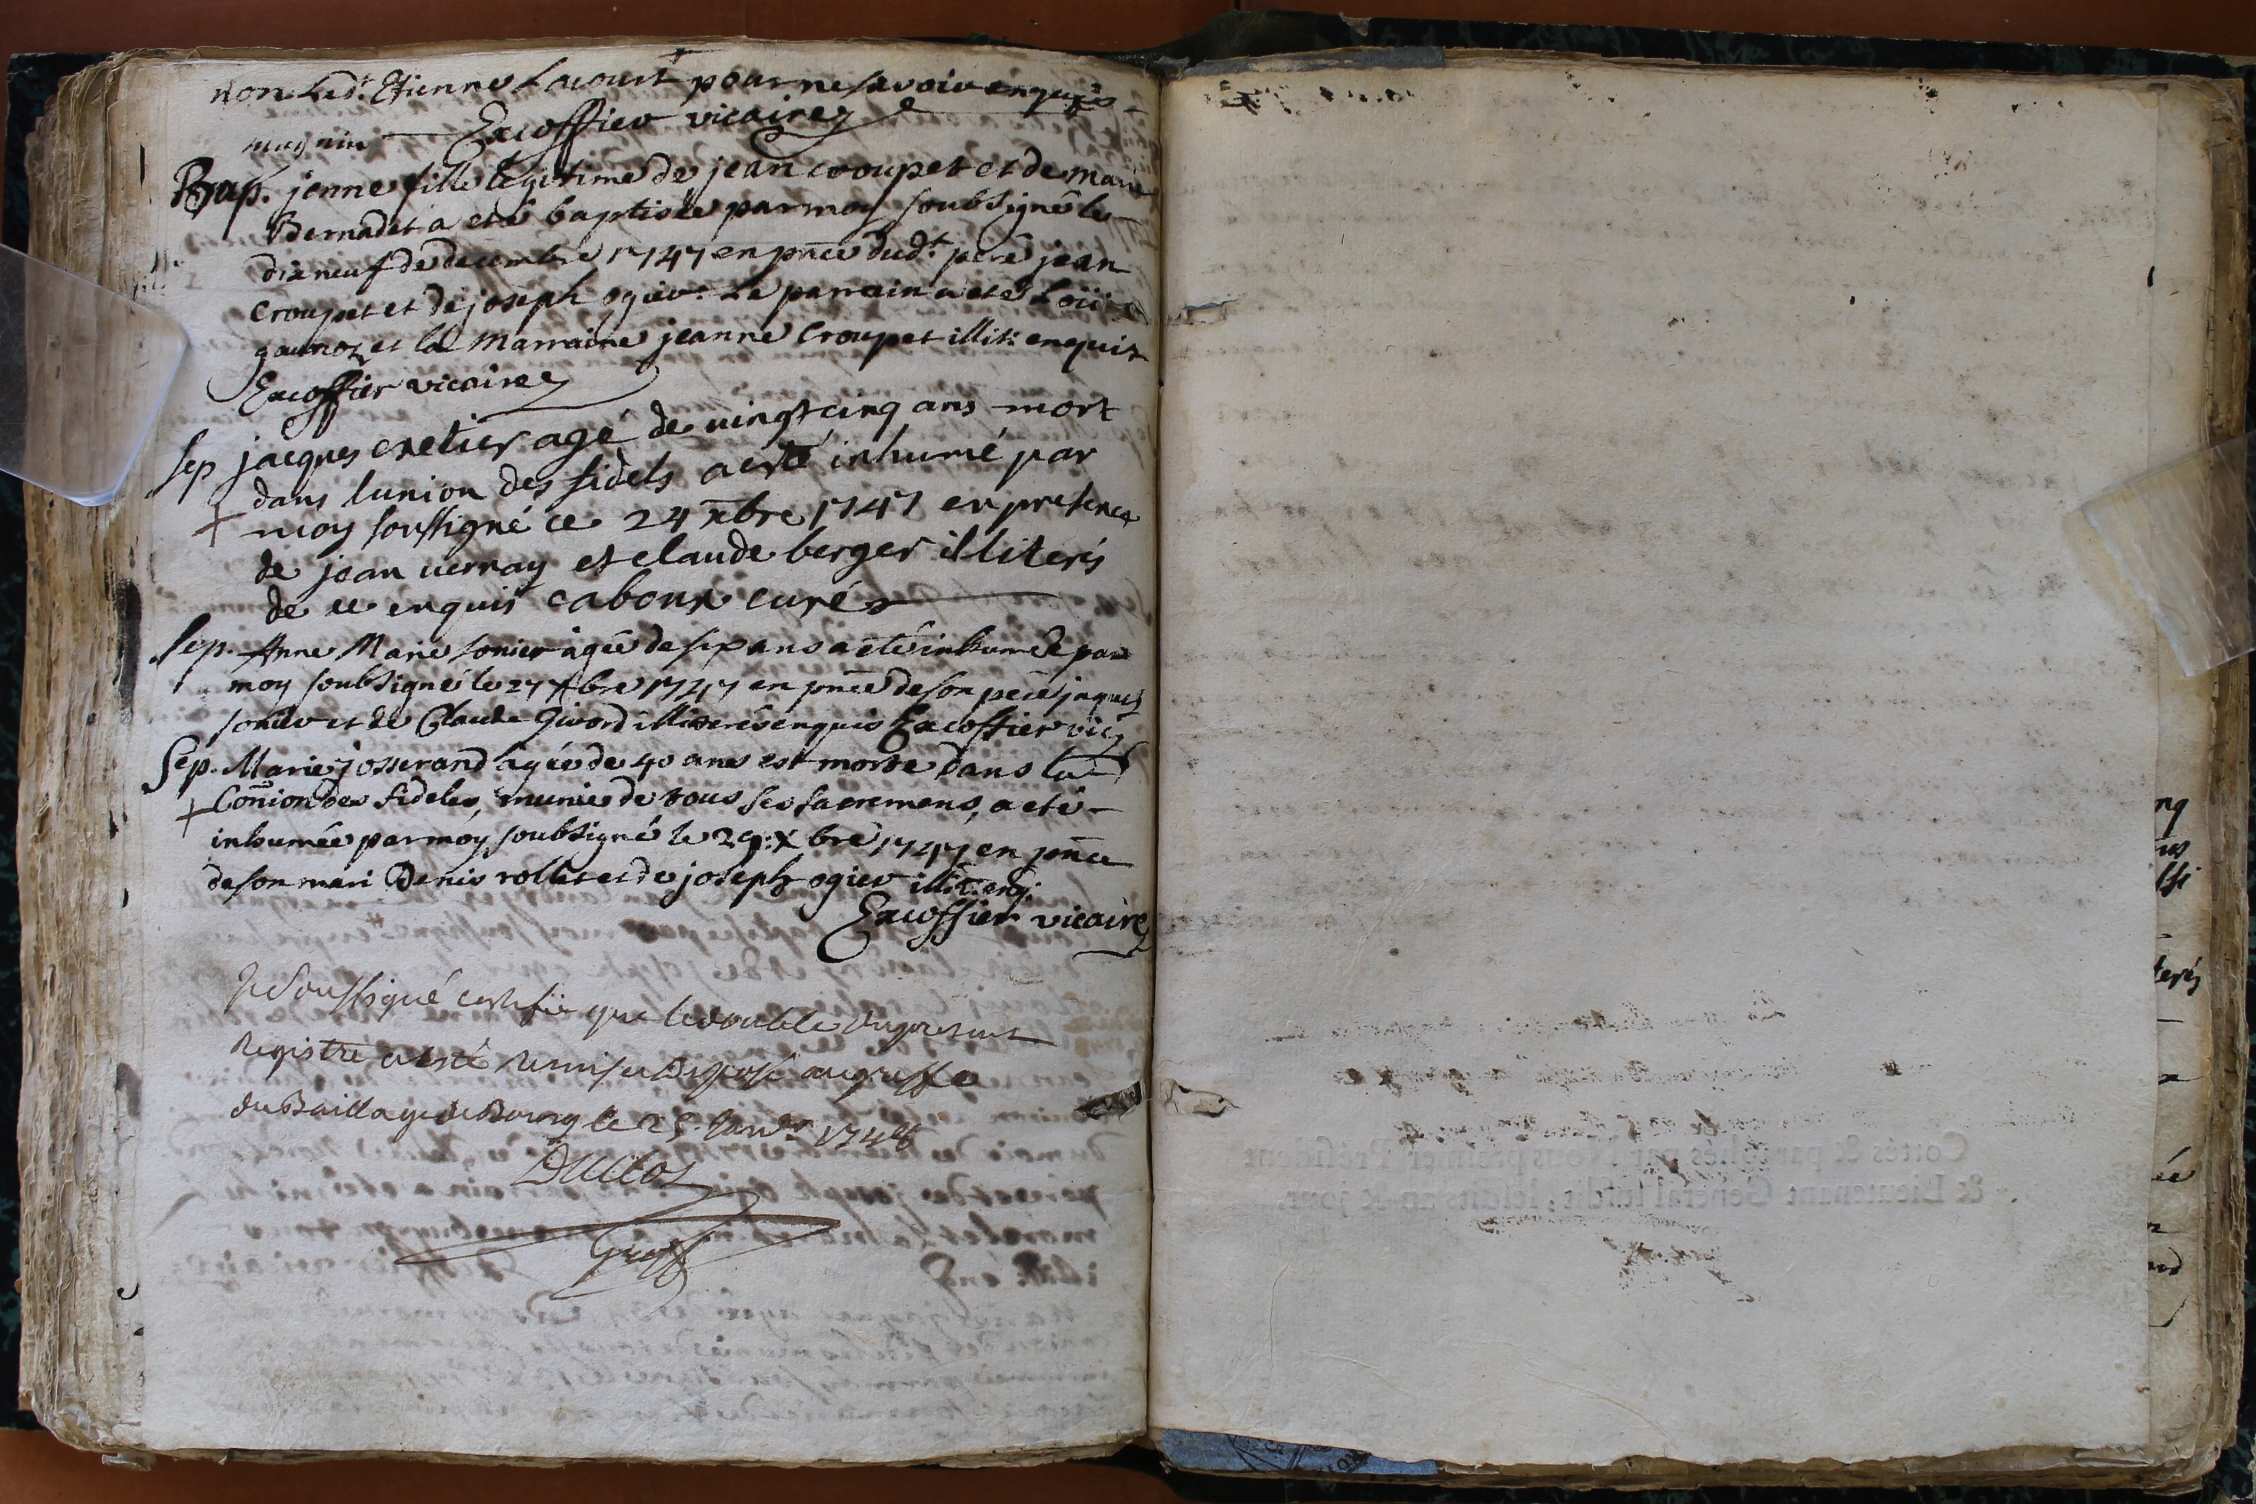 non Led.t Etienne Lacourt pour ne savoir enquis
magnin Excoffier vicaire
Bap. jenne fille legitime de jean croupet et de marie
Bernadet a eté baptisée par moy soubsigné le
dix neuf de decembre 1747 en pnce dud.t pere jean
Croupet et de joseph ogier. Le parrain a eté Loüi
et la Marraine jeanne Croupet illit: enquis
Excoffier vicaire
Sep jacques cretier agé de vingt cinq ans mort
dans lunion des fidels a esté inhumé par
moy soussigné ce 24 xbre 1747 en presence
de jean vernay et claude berger illiterés
de ce enquis caboux curé
Sep. Anne Marie sonier agée de six ans a eté inhumée par
moy soubsigné le 27 xbre 1747 en pnce de son pere jaques
sonier et de Claude Givord illiterés enquis Excoffier vic
Sep. Marie josserand agée de 40 ans est morte dans la
Coñion des fideles, munie de tous ses sacremens, a eté
inhumée par moy soubsigné le 29 xbre 1747 en pnce
de son mari Denis rollet et de joseph ogier illit. enq.
Excoffier vicaire
Je Soussigné certifie que le double du present
Registre a esté remis et deposé au greffe
du Bailliage de Bourg le 25 Janv.r 1748
Duclos
Greff